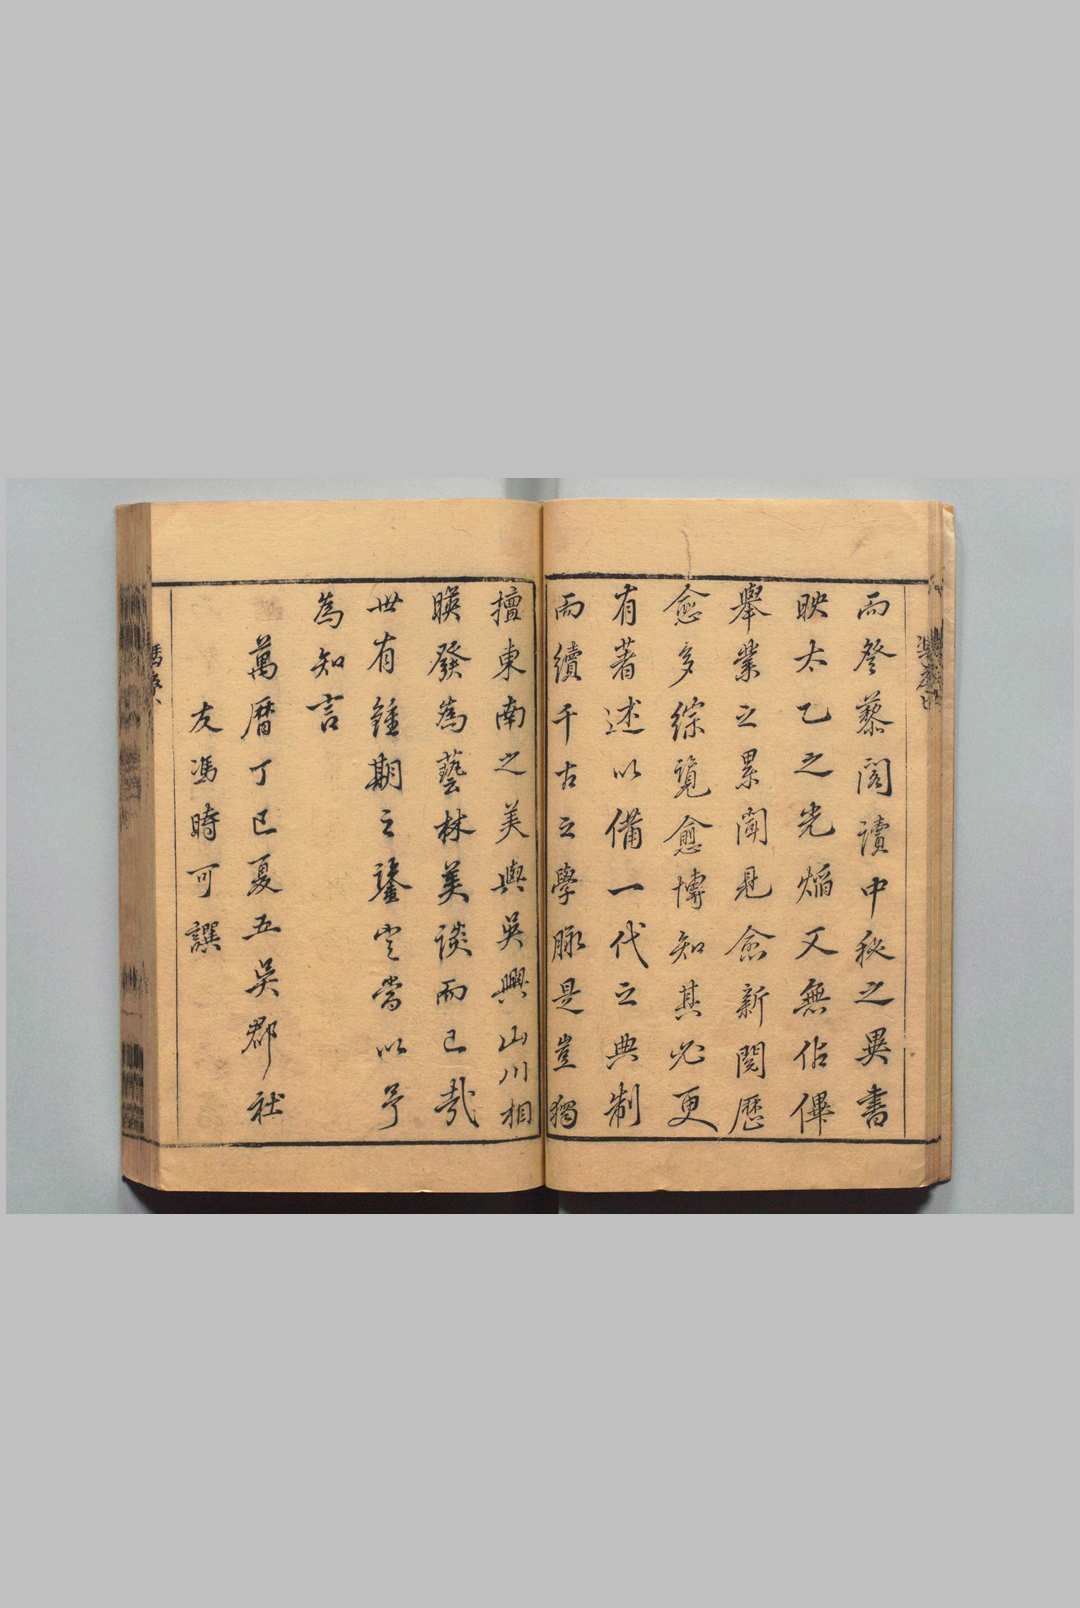 而登藜閣讀中秘之異書
映太乙之光焰又無佔俾
舉業之累聞見愈新閱歷
愈多綜覽愈博知其必更
有著述以備一代之典制
而續千古之學脉是豈獨
擅東南之美與吳興山川相
暎發為藝林美談而已哉
世有鍾期之鑒定當以予
為知言
萬曆丁巳夏五吳郡社
友馮時可譔